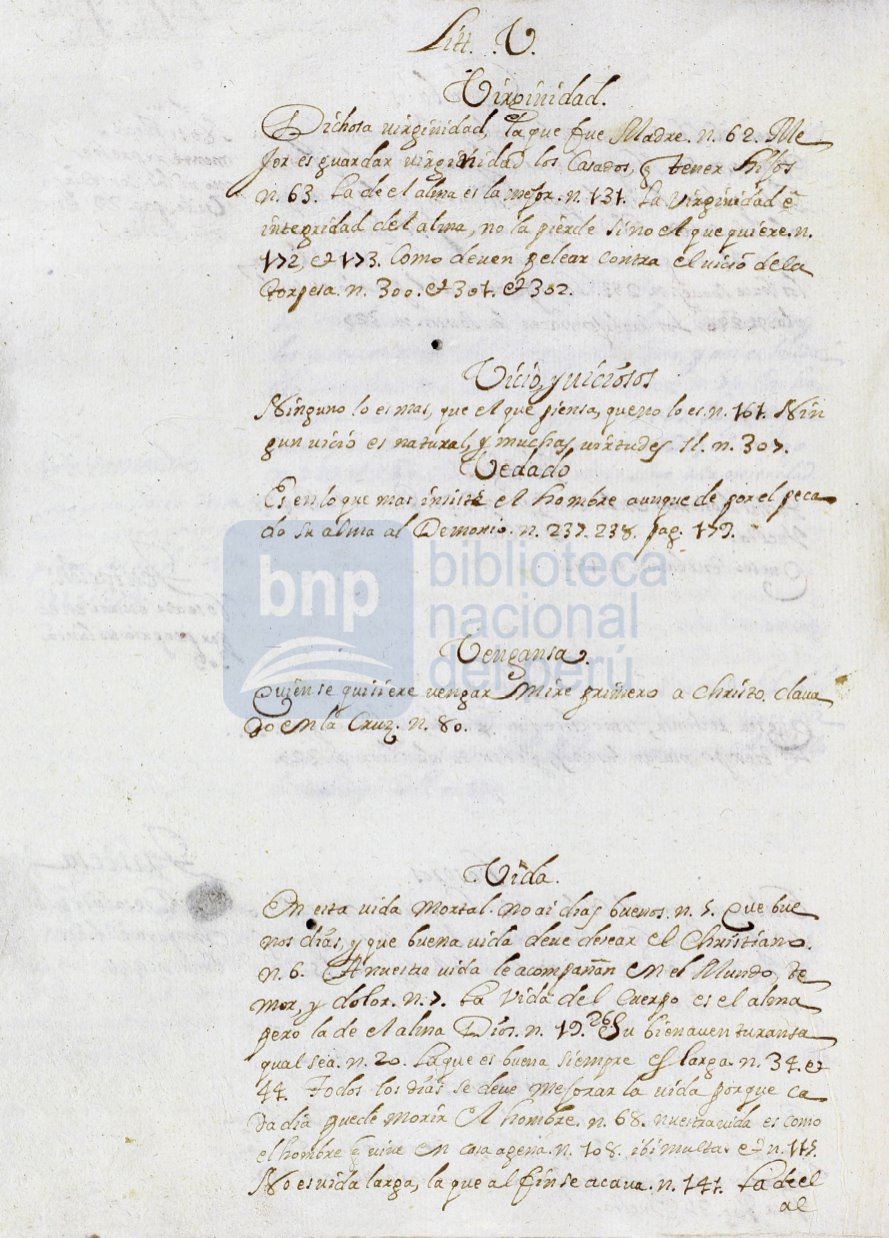 Litt. V.
Virginidad.
Dichosa virginidad, la que fue Madre. n. 62. Me
jor es guardar virginidad los Casados, q̃ tener hijos
n. 63. La de el alma es la mejor. n. 131. La virginidad ẽ
integridad del alma, no la pierde sino el que quiere. n.
172, et 173. Como deven pelear contra el vicio de la
torpesa. n. 300. et 301. et 302.
Vicio, y viciosos
Ninguno lo es mas, que el que piensa, que no lo es. n. 161. Nin
gun vicio es natural, y muchas virtudes sí. n. 307.
Vedado
Es en lo que mas insiste el hombre aunque de por el peca
do su alma al Demonio. n. 237. 238. pag. 179.
bnp biblioteca
nacional
del perú
Vengansa.
Quien se quisiere vengar Mire primero a Christo clava
do en la Cruz. n. 80.
Vida.
En esta vida Mortal no ai dias buenos. n. 5. Que bue
nos dias, y que buena vida deve desear el Christiano.
n. 6. A nuestra vida le acompañan en el Mundo, te
mor, y dolor. n. 7. La Vida del Cuerpo es el alma
pero la de el alma Dios. n. 19. 260 Su bienaventuransa
qual sea. n. 20. La que es buena siempre es larga. n. 34. et
44. Todos los dias se deve mejorar la vida porque ca
da dia puede morir el hombre. n. 68. nuestra vida es como
el hombre q̃ vive en casa agena. n. 108. ibi multa. et n. 115.
No es vida larga, la que al fin se acava. n. 141. La de el
al